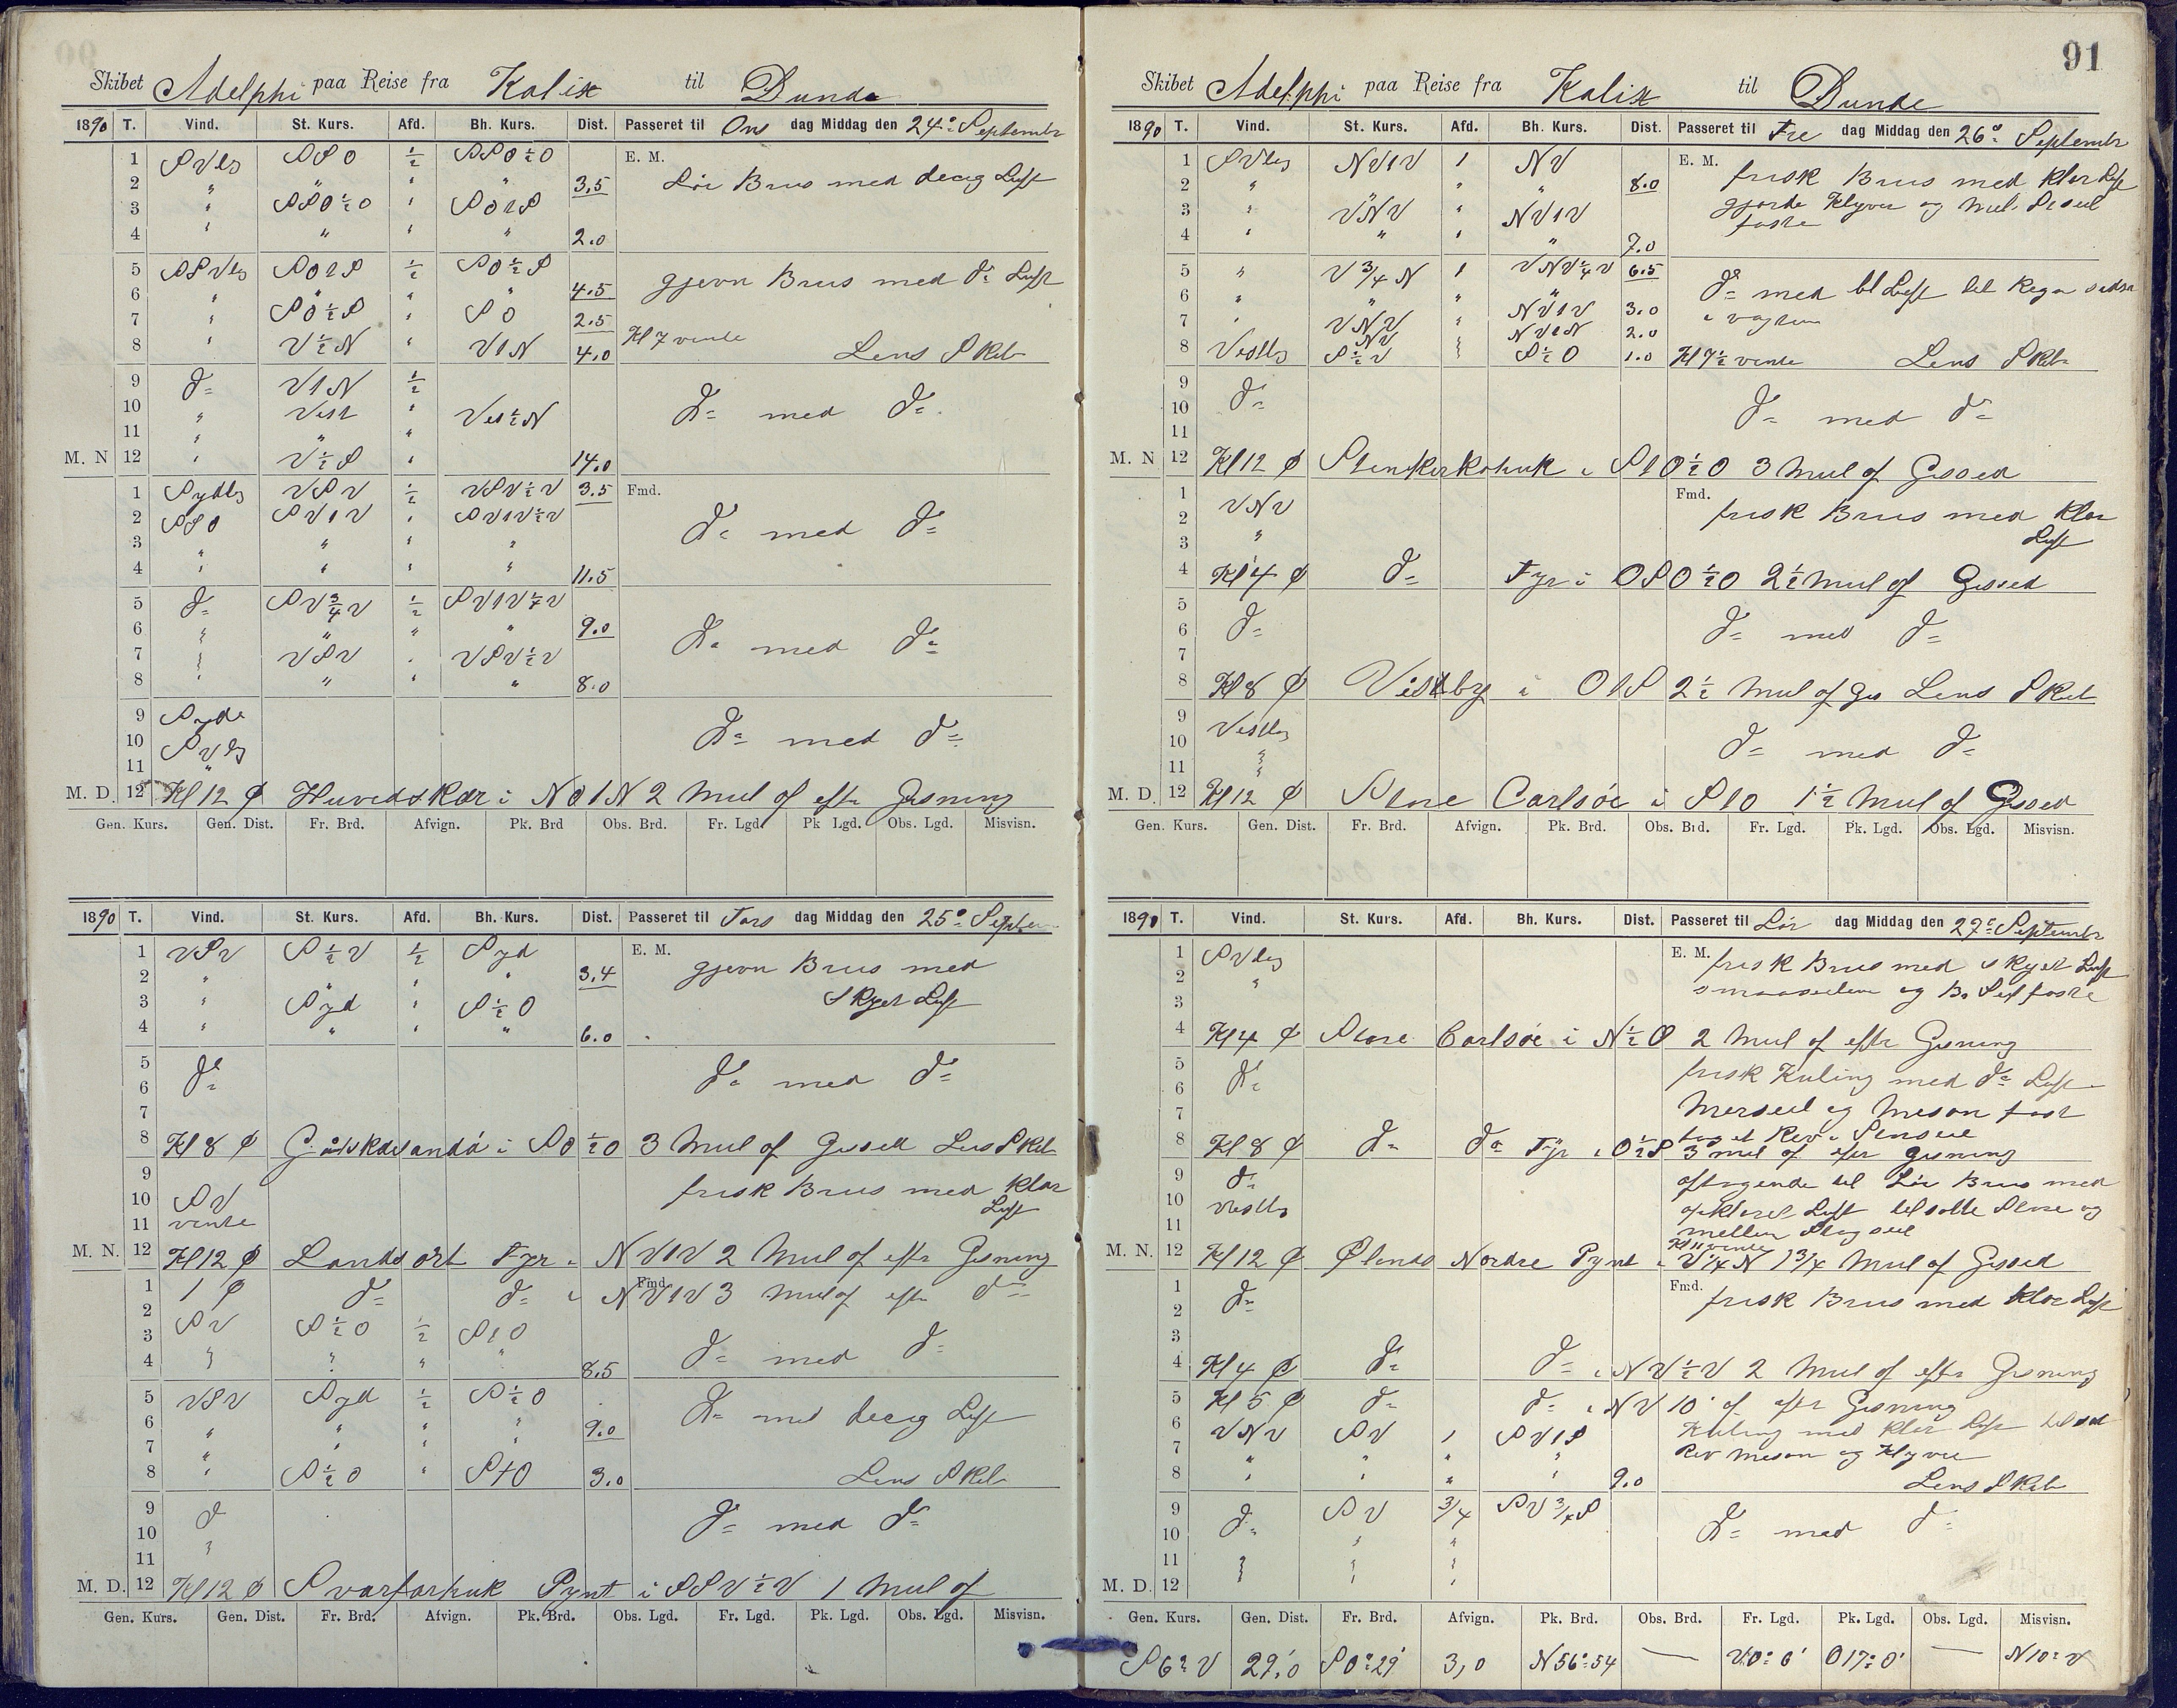 Skibet Adelphi paa Reise fra Kalix til Dunde
1890 T. Vind. St. Kurs. Afd. Bh. Kurs. Dist. Passeret til Ons dag Middag den 24de September
1 SVlg SSO ½ SSO½O E. M.
2 " " " " 3.5 Lör Bris med deeig Luft
3 " SSO½O " SO1S
4 " " " " 2.0
5 SSVlg SO1S ½ SO½S
6 " " " " 4.5 gjevn Bris med do Luft
7 " SO½S " SO 2.5
8 " V½N " V1N 4.0 Kl 7 vente Lens Pkel
9 do V1N ½
10 " Vest " Vest½N do med do
11 " " "
M. N 12 " V½S " 14.0
1 Sydlg VSV ½ VSV½V 3.5 Fmd.
2 SSO SV1V " SV1V½V do med do
3 " " " "
4 " " " " 11.5
5 do SV¾V ½ SV1V¼V
6 " " " " 9.0 do med do
7 " VSV " VSV½V
8 " " " " 8.0
9 Syde
10 SVlg do med do
11 "
M. D. 12 Kl 12 φ Huvedskær i NO1N 2 Mul of efter Gisning
Gen. Kurs. Gen. Dist. Fr. Brd. Afvign. Pk. Brd Obs. Brd. Fr. Lgd. Pk Lgd. Obs. Lgd. Misvisn.
1890 T. Vind. St. Kurs. Afd. Bh. Kurs. Dist. Passeret til Tors dag Middag den 25de Septbr
1 VSV S½V ½ Syd E. M. gjevn Bris med
2 " " " " 3.4
3 " Syd " S½O Skyet Luft
4 " " " " 6.0
5
6 do do med do
7
8 Kl 8 φ Gotskasandö i SO½O 3 Mul of Gissed Lens Pkel
9 frisk Bris med klar
10 SV Luft
11 vente
M. N. 12 Kl 12 φ Landsort Fyr i NV1V 2 Mul of efter Gisning
1 1 φ do do i NV1V 3 Mul of efter do Fmd.
2
3 SV S½O ½ S1O
4 " " " " 8.5 do med do
5 VSV Syd ½ S½O
6 " " " " 9.0 do med deeig Luft
7 " " " "
8 " S½O " S1O 3.0 Lens Pkel
9 do
10 " do med do
11
M. D. 12 Kl 12 φ Svarfarhuk Pynt i SSV½V 1 Mul of
Gen. Kurs. Gen. Dist. Fr. Brd. Afvign. Pk. Brd. Obs. Lgd. Fr. Lgd. Pk. Lgd. Obs. Lgd. Misvisn.
91
Skibet Adelphi paa Reise fra Kalix til Dunde
1890 T. Vind. St. Kurs. Afd. Bh. Kurs. Dist. Passeret til Fre dag Middag den 26de September
1 SVlg NV1V 1 NV E. M. frisk Bris med klar Luft
2 " " " " 8.0
3 " VNV " NV1V gjorde Klyver og Mel. Sseil
4 " " " " 7.0 faste
5 " V¾N 1 VNV¼V 6.5
6 " " " NV1V 3.0 do med bl Luft til Regn
7 " VNV " NV1N 2.0 i vagten
8 Vestlg S½V " S½O 1.0 Kl 7½ vente Lens Pkel
9
10 do do med do
11
M. N 12 Kl 12 φ Stenkirkehuk i S1O½O 3 Mul of Gissed
1 VNV Fmd. frisk Bris med klar
2
3 " Luft
4 Kl 4 φ do Fyr i OSO½O 2½ Mul of Gissed
5
6 do do med do
7
8 Kl 8 φ Visby i O1S 2½ Mul of Gis Lens Pkel
9 Vestlg
10 " do med do
11 "
M. D. 12 Kl 12 φ Store Carlsöe i S1O 1½ Mul of Gissed
Gen. Kurs. Gen. Dist. Fr. Brd. Afvign. Pk. Brd. Obs. Brd. Fr. Lgd. Pk. Lgd. Obs. Lgd. Misvisn.
1890 T. Vind. St. Kurs. Afd. Bh. Kurs. Dist. Passeret til Lör dag Middag den 27de September
1 SVlg E. M. frisk Bris med skyet Luft
2 " smaaseilene og Br Seil faste
3
4 Kl 4 φ Store Carlsöe i N½O 2 Mul of efter Gisning
5 frisk Kuling med do Luft
6 do
7 Merseil og Mesan fast
8 Kl 8 φ do do Fyr i O½S 3 mul of efter Gisning
9 do aftagende til Lör Bris med
10 Vestlg opklaret Luft tilsatte Store og
11 mellem Stagseil
Kl 11 vente
M. N. 12 Kl 12 φ Ølands Nordre Pynt i V¼N 1¾ Mul of Gissed
1 do Fmd. frisk Bris med klar Luft
2
3
4 Kl 4 φ do do i NV½V 2 Mul of efter Gisning
5 Kl 5 φ do do i NV 10' of efter Gisning
6 VNV SV 1 SV1S Kuling med klar Luft
7 " " " " Rev Mesan og Klyver
8 " " " " 9.0 Lens Pkel
9 do SV ¾ SV¾S
10 " " " do med do
11 " " "
M. D. 12 " " "
Gen. Kurs. Gen. Dist. Fr. Brd. Afvign. Pk. Brd. Obs. Brd. Fr. Lgd. Pk. Lgd. Obs. Lgd. Misvisn.
S6°V 29,0 S0°29' 3,0 N56°54 — V0°6' O17°0' — N10°V